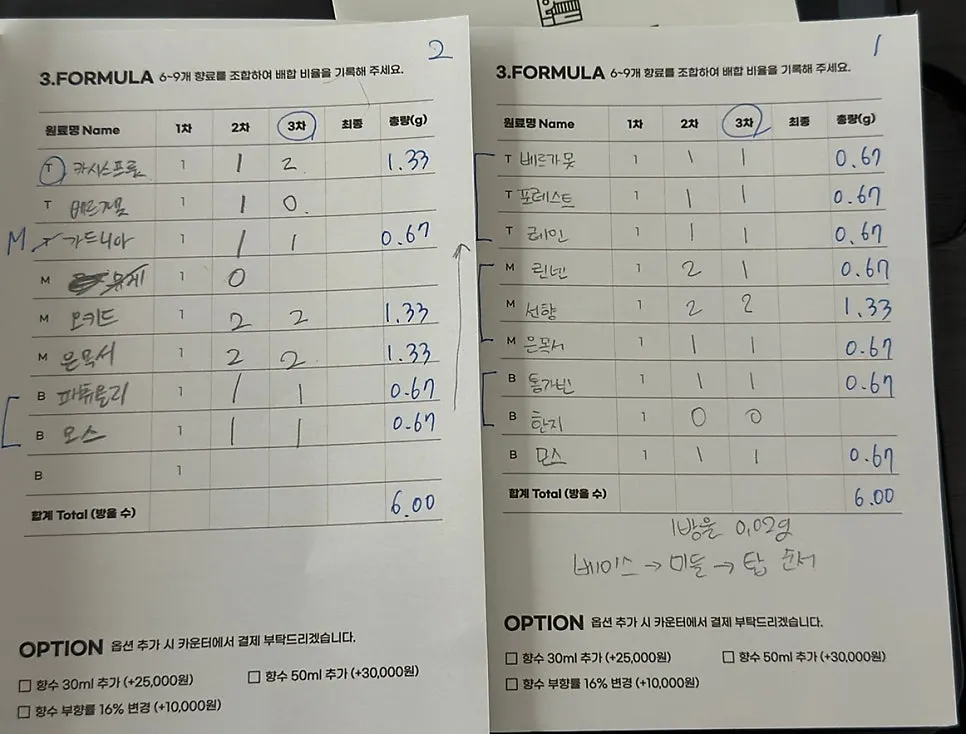 2
3.FORMULA 6~9개 향료를 조합하여 배합 비율을 기록해 주세요.
원료명 Name 1차 2차 3차 최종 총량(g)
T 카시스프룻 1 1 2 1.33
T 베르가못 1 1 0.
M T 가드니아 1 1 1 0.67
M 1 0
M 오키드 1 2 2 1.33
M 은목서 1 2 2 1.33
B 파츄올리 1 1 1 0.67
B 모스 1 1 1 0.67
B 1
합계 Total (방울 수) 6.00
OPTION 옵션 추가 시 카운터에서 결제 부탁드리겠습니다.
향수 30ml 추가 (+25,000원) 향수 50ml 추가 (+30,000원)
향수 부향률 16% 변경 (+10,000원)
1
3.FORMULA 6~9개 향료를 조합하여 배합 비율을 기록해 주세요.
원료명 Name 1차 2차 3차 최종 총량(g)
T 베르가못 1 1 1 0.67
T 포레스트 1 1 1 0.67
T 레인 1 1 1 0.67
M 린넨 1 2 1 0.67
M 선향 1 2 2 1.33
M 은목서 1 1 1 0.67
B 통가빈 1 1 1 0.67
B 한지 1 0 0
B 모스 1 1 1 0.67
합계 Total (방울 수) 6.00
1방울 0.02g
베이스 → 미들 → 탑 순서
OPTION 옵션 추가 시 카운터에서 결제 부탁드리겠습니다.
향수 30ml 추가 (+25,000원) 향수 50ml 추가 (+30,000원)
향수 부향률 16% 변경 (+10,000원)